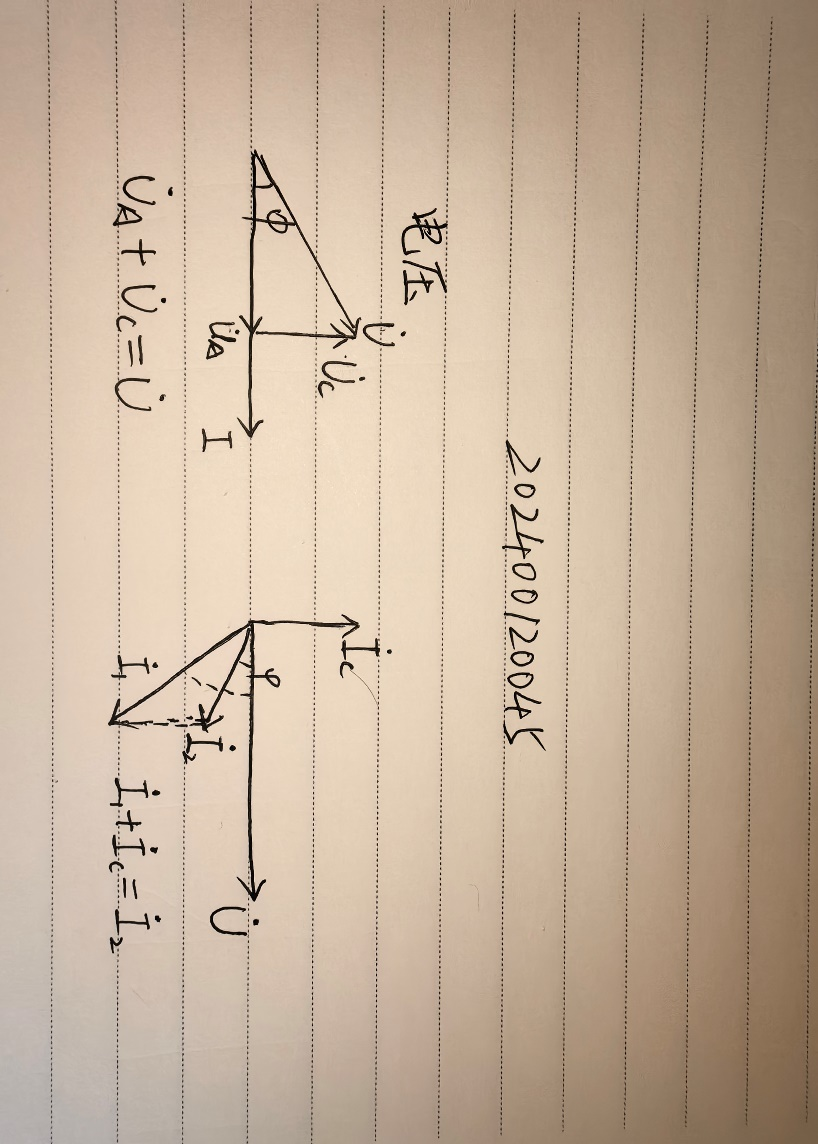 202400120045
电压
U̇
U̇c
Φ
U̇A
I
U̇A + U̇c = U̇
İc
φ
U̇
İ₂
İ₁
İ₁ + İc = İ₂